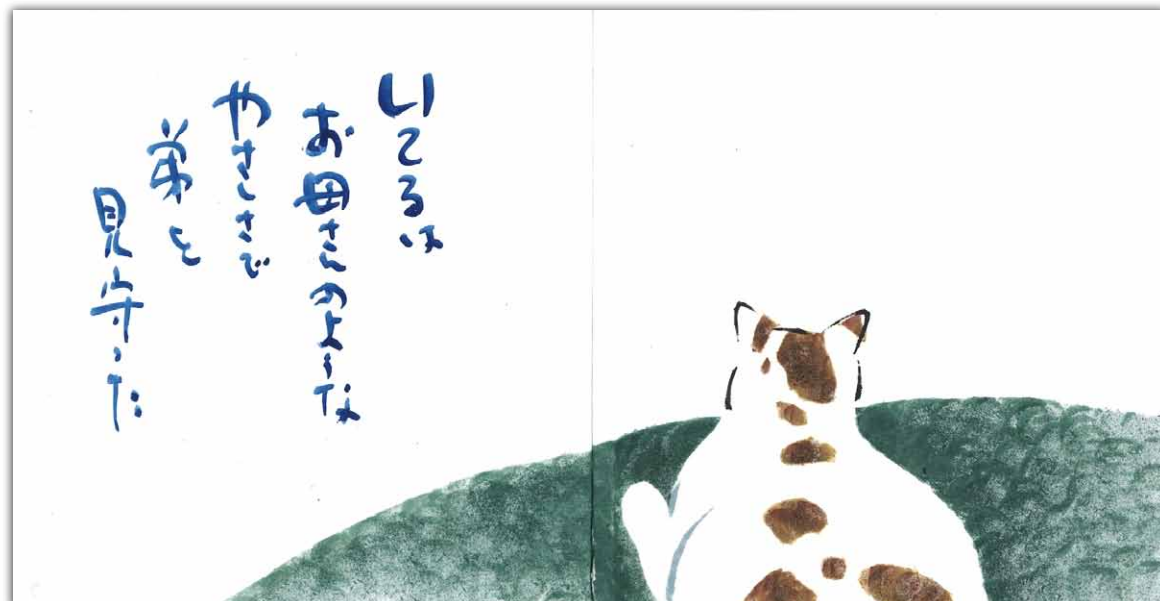 いてるは
お母さんのような
やさしさで
弟を
見守った